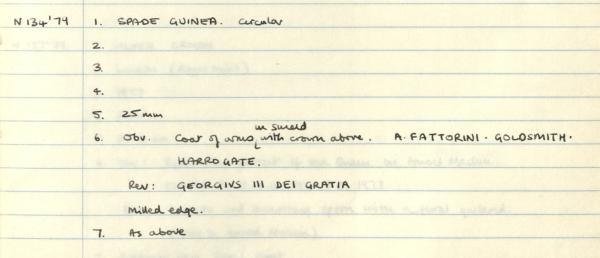 N134'79 1. SPADE GUINEA. Circular
2.
3.
4.
5. 25mm
in shield
6. Obv. Coat of arms with crown above. A. FATTORINI. GOLDSMITH.
HARROGATE.
Rev: GEORGIVS III DEI GRATIA
Milled edge.
7. As above